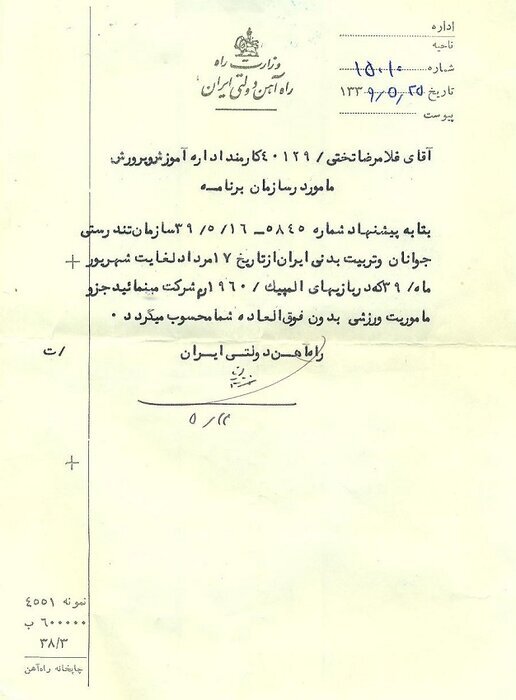 وزارت راه
راه آهن دولتی ایران
اداره
ناحیه
شماره ۱۵۰۱۰
تاریخ ۱۳۳۹/۵/۲۵
پیوست
آقای غلامرضا تختی / ۴۰۱۲۹ کارمند اداره آموزش و پرورش
مامور در سازمان برنامه
بنا به پیشنهاد شماره ۵۸۴۵ – ۳۹/۵/۱۶ سازمان تندرستی
جوانان و تربیت بدنی ایران از تاریخ ۱۷ مرداد لغایت شهریور
ماه / ۳۹ که در بازیهای المپیک / ۱۹۶۰ رم شرکت مینمائید جزو
ماموریت ورزشی بدون فوق العاده شما محسوب میگردد ۰
راه آهن دولتی ایران
/ت
نمونه ۴۵۵۱
۶۰۰۰۰۰ ب
۳۸/۳
چاپخانه راه‌آهن